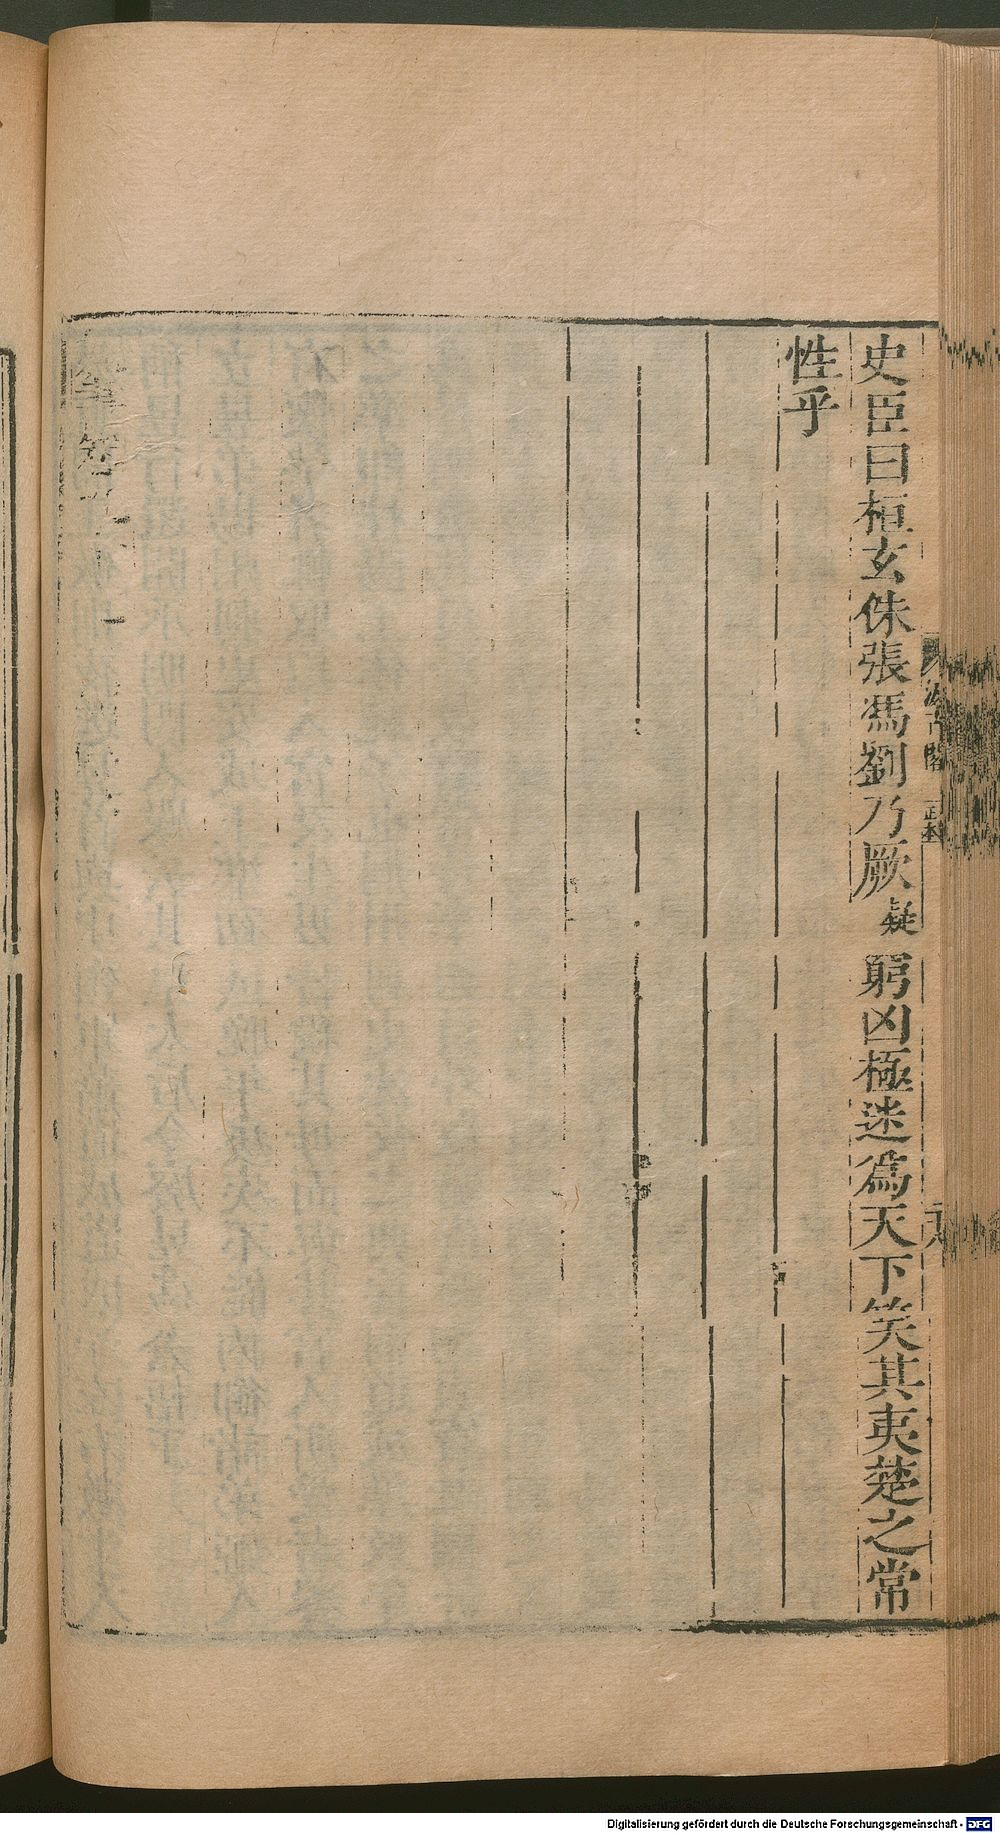 史臣曰桓玄侏張馮劉乃厥疑 窮凶極迷爲天下笑其夷楚之常
性乎
汲古閣
正本
Digitalisierung gefördert durch die Deutsche Forschungsgemeinschaft - DFG